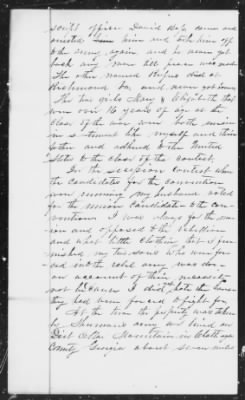 script officer David Hays came and
arrested him and took him off
to the army again and he never got
back any more till peace was made
The other named Rufus died at
Richmond Va and never got home
The two girls Mary & Elizabeth that
were over 12 years of age at the
close of the war were both union
in sentiment like myself and their
father and adhered to the United
States to the close of the contest.
In the secession contest when
the candidates for the convention
were running my husband voted
for the union candidates to the con-
vention I was always for the un-
ion and opposed to the rebellion
and what little clothing that I fur-
nished my two sons who were for-
ced into the rebel army was done
on account of their necessity
not because I did like the cause
they had been forced to fight for,
At the time the property was taken
by Sherman's army we lived on
Dirt Cellar Mountain in Chattooga
County Georgia about seven miles